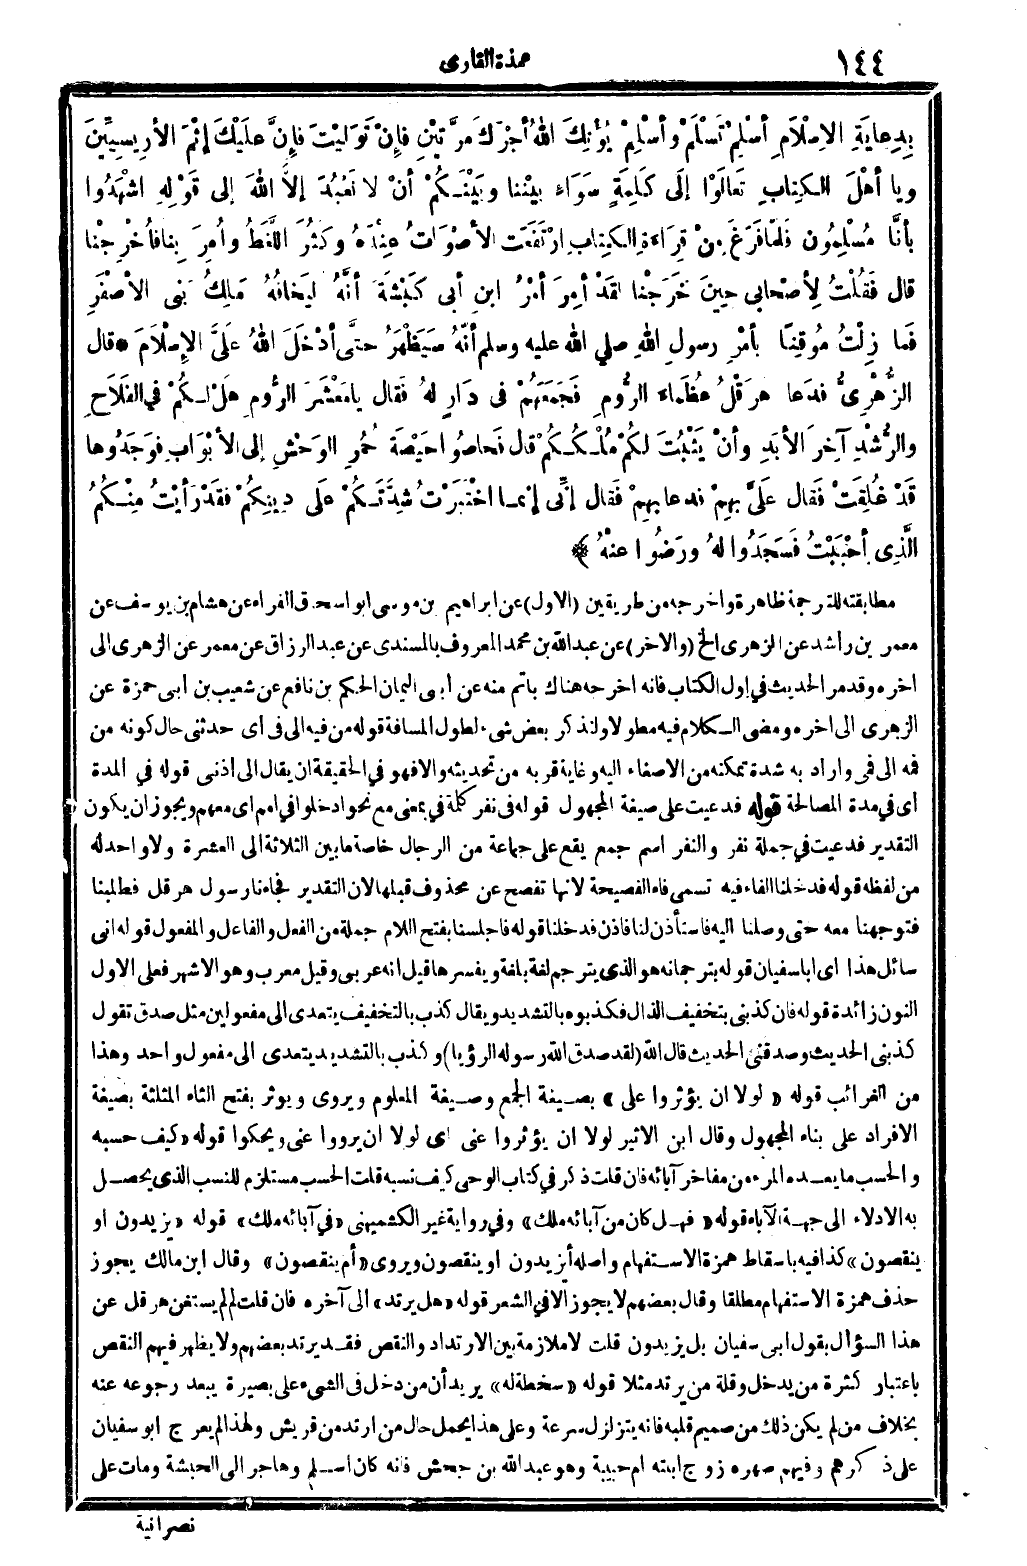 ١٤٤
عمدة القارى
بِدِعايَةِ الإِسْلَامِ أسْلِمْ تَسْلَمْ وأسْلِمْ يُؤْتِكَ اللهُ أجْرَكَ مَرَّتَيْنِ فإِنْ تَوَلَّيْتَ فإِنَّ علَيْكَ إثْمَ الأرِيسِيِّينَ
ويا أهْلَ الكِتابِ تَعالَوْا إلَى كَلِمَةٍ سَوَاءٍ بيْننا وبَيْنَكُمْ أنْ لا نَعْبُدَ إلاَّ اللهَ إلى قَوْلِهِ اشْهَدُوا
بأنَّا مُسْلِمُون فلَمَّا فَرَغَ مِنْ قِرَاءَةِ الكِتابِ ارْتَفَعَتِ الأصْوَاتُ عِنْدَهُ وكَثُرَ اللَّغَطُ وأُمِرَ بِنا فأُخْرِجْنا
قال فَقُلْتُ لِأصْحابي حِينَ خَرَجْنا لقَدْ أمِرَ أمْرُ ابنِ أبي كَبْشَةَ أنَّهُ لَيَخافُهُ مَلِكُ بَنِى الأصْفَرِ
فَما زِلْتُ مُوقِنًا بأمْرِ رسولِ اللهِ صلي الله عليه وسلم أنّهُ سَيَظْهَرُ حتَّى أدْخَلَ اللهُ عَلَيَّ الإِسْلَامَ * قال
الزُّهْرِىُّ فدَعا هرَقْلُ عُظَماءَ الرُّومِ فَجَمَعَهُمْ فى دَارٍ لهُ فقال يامَعْشَرَ الرُّومِ هلْ لَكُمْ في الفَلَاحِ
والرُّشْدِ آخِرَ الأبَدِ وأنْ يَثْبُتَ لكُمْ مُلْكُكُمْ قال فَحاصُوا حَيْصَةَ حُمُرِ الوَحْشِ إلى الأبْوَابِ فوَجَدُوها
قَدْ غُلِقَتْ فَقال عَلَيَّ بِهِمْ فدَعا بِهِمْ فَقال إنِّي إنَّما اخْتَبَرْتُ شِدَّتَكُمْ عَلَى دِينِكُمْ فقَدْ رَأيْتُ مِنْكُمُ
الَّذِى أحْبَبْتُ فَسَجَدُوا لهُ ورَضُوا عنْهُ ﴾
مطابقته للترجمة ظاهرة واخرجه من طريقين (الاول) عن ابراهيم بن موسى ابو اسحق الفراء عن هشام بن يوسف عن
معمر بن راشد عن الزهرى الخ (والاخر) عن عبدالله بن محمد المعروف بالمسندى عن عبد الرزاق عن معمر عن الزهرى الى
اخره وقد مر الحديث في اول الكتاب فانه اخرجه هناك باتم منه عن ابى اليمان الحكم بن نافع عن شعيب بن ابى حمزة عن
الزهرى الى اخره ومضى الكلام فيه مطولا ولنذكر بعض شىء لطول المسافة قوله من فيه الى فى اى حدثنى حال كونه من
فمه الى فى واراد به شدة تمكنه من الاصغاء اليه وغاية قربه من تحديثه والا فهو في الحقيقة ان يقال الى اذنى قوله في المدة
اى في مدة المصالحة قوله فدعيت على صيغة المجهول قوله فى نفر كلمة في بمعنى مع نحو ادخلوا في امم اى معهم ويجوز ان يكون
التقدير فدعيت في جملة نفر والنفر اسم جمع يقع على جماعة من الرجال خاصة ما بين الثلاثة الى العشرة ولا واحد له
من لفظه قوله فدخلنا الفاء فيه تسمى فاء الفصيحة لانها تفصح عن محذوف قبلها لان التقدير فجاءنا رسول هرقل فطلبنا
فتوجهنا معه حتى وصلنا اليه فاستأذن لنا فاذن فدخلنا قوله فاجلسنا بفتح اللام جملة من الفعل والفاعل والمفعول قوله انى
سائل هذا اى ابا سفيان قوله بترجمانه هو الذى يترجم لغة بلغة ويفسرها قيل انه عربى وقيل معرب وهو الاشهر فعلى الاول
النون زائدة قوله فان كذبنى بتخفيف الذال فكذبوه بالتشديد ويقال كذب بالتخفيف يتعدى الى مفعولين مثل صدق تقول
كذبنى الحديث وصدقنى الحديث قال الله (لقد صدق الله رسوله الرؤيا) وكذب بالتشديد يتعدى الى مفعول واحد وهذا
من الغرائب قوله « لولا ان يؤثروا على » بصيغة الجمع وصيغة المعلوم ويروى ويوثر بفتح الثاء المثلثة بصيغة
الافراد على بناء المجهول وقال ابن الاثير لولا ان يؤثروا عنى اى لولا ان يرووا عنى ويحكوا قوله «كيف حسبه
والحسب ما يعده المرء من مفاخر آبائه فان قلت ذكر في كتاب الوحى كيف نسبه قلت الحسب مستلزم للنسب الذى يحصل
به الادلاء الى جهة الآباء قوله «فهل كان من آبائه ملك» وفي رواية غير الكشميهنى «في آبائه ملك» قوله «يزيدون او
ينقصون» كذا فيه باسقاط همزة الاستفهام واصله أيزيدون او ينقصون ويروى «أم ينقصون» وقال ابن مالك يجوز
حذف همزة الاستفهام مطلقا وقال بعضهم لا يجوز الا في الشعر قوله «هل يرتد» الى آخره فان قلت لم لم يستغن هرقل عن
هذا السؤال بقول ابى سفيان بل يزيدون قلت لا ملازمة بين الارتداد والنقص فقد يرتد بعضهم ولا يظهر فيهم النقص
باعتبار كثرة من يدخل وقلة من يرتد مثلا قوله «سخطة له» يريد أن من دخل فى الشىء على بصيرة يبعد رجوعه عنه
بخلاف من لم يكن ذلك من صميم قلبه فانه يتزلزل بسرعة وعلى هذا يحمل حال من ارتد من قريش ولهذا لم يعرج ابو سفيان
على ذكرهم وفيهم صهره زوج ابنته ام حبيبة وهو عبد الله بن جحش فانه كان اسلم وهاجر الى الحبشة ومات على
نصرانية